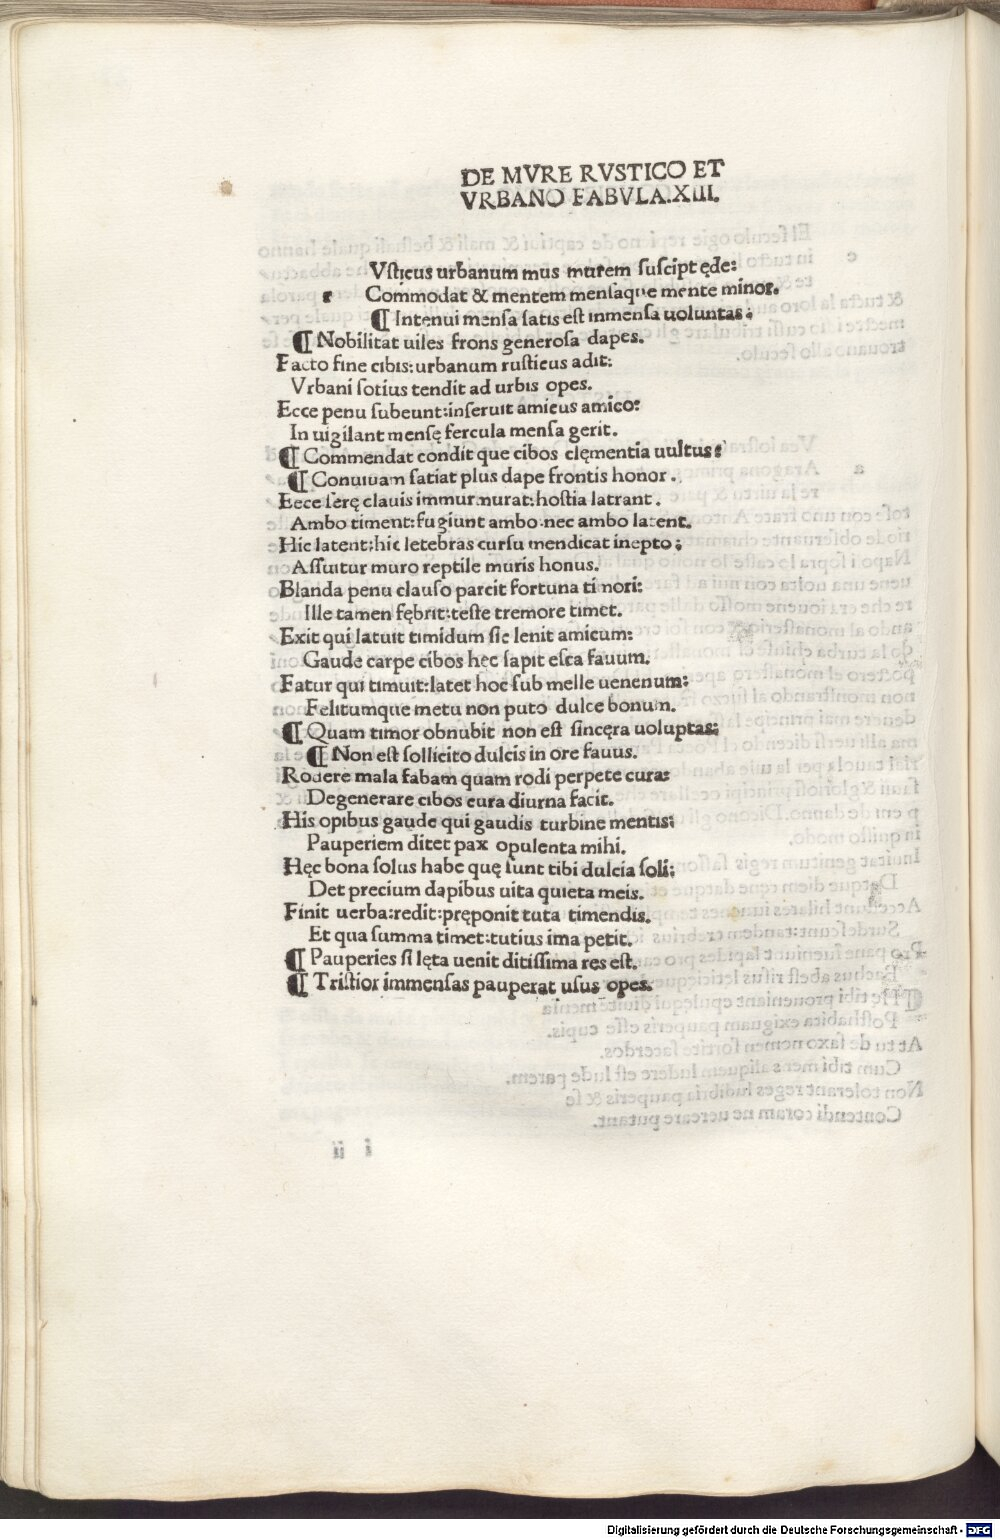 DE MVRE RVSTICO ET
VRBANO FABVLA.XIII.
Vsticus urbanum mus murem suscipt ęde:
r Commodat & mentem mensaque mente minor.
¶ Intenui mensa satis est inmensa uoluntas:
¶ Nobilitat uiles frons generosa dapes.
Facto fine cibis: urbanum rusticus adit:
Vrbani sotius tendit ad urbis opes.
Ecce penu subeunt: inseruit amicus amico:
In uigilant mensę fercula mensa gerit.
¶ Commendat condit que cibos clęmentia uultus:
¶ Conuiuam satiat plus dape frontis honor.
Ecce serę clauis immurmurat: hostia latrant.
Ambo timent: fugiunt ambo. nec ambo latent.
Hic latent: hic letebras cursu mendicat inepto:
Assuitur muro reptile muris honus.
Blanda penu clauso parcit fortuna timori:
Ille tamen fębrit: teste tremore timet.
Exit qui latuit timidum sic lenit amicum:
Gaude carpe cibos hec sapit esca fauum.
Fatur qui timuit: latet hoc sub melle uenenum:
Felitumque metu non puto dulce bonum.
¶ Quam timor obnubit non est sincęra uoluptas:
¶ Non est sollicito dulcis in ore fauus.
Rodere mala fabam quam rodi perpete cura:
Degenerare cibos cura diurna facit.
His opibus gaude qui gaudis turbine mentis:
Pauperiem ditet pax opulenta mihi.
Hęc bona solus habe quę sunt tibi dulcia soli:
Det precium dapibus uita quieta meis.
Finit uerba: redit: pręponit tuta timendis.
Et qua summa timet: tutius ima petit.
¶ Pauperies si lęta uenit ditissima res est.
¶ Tristior immensas pauperat usus opes.
Digitalisierung gefördert durch die Deutsche Forschungsgemeinschaft - DFG